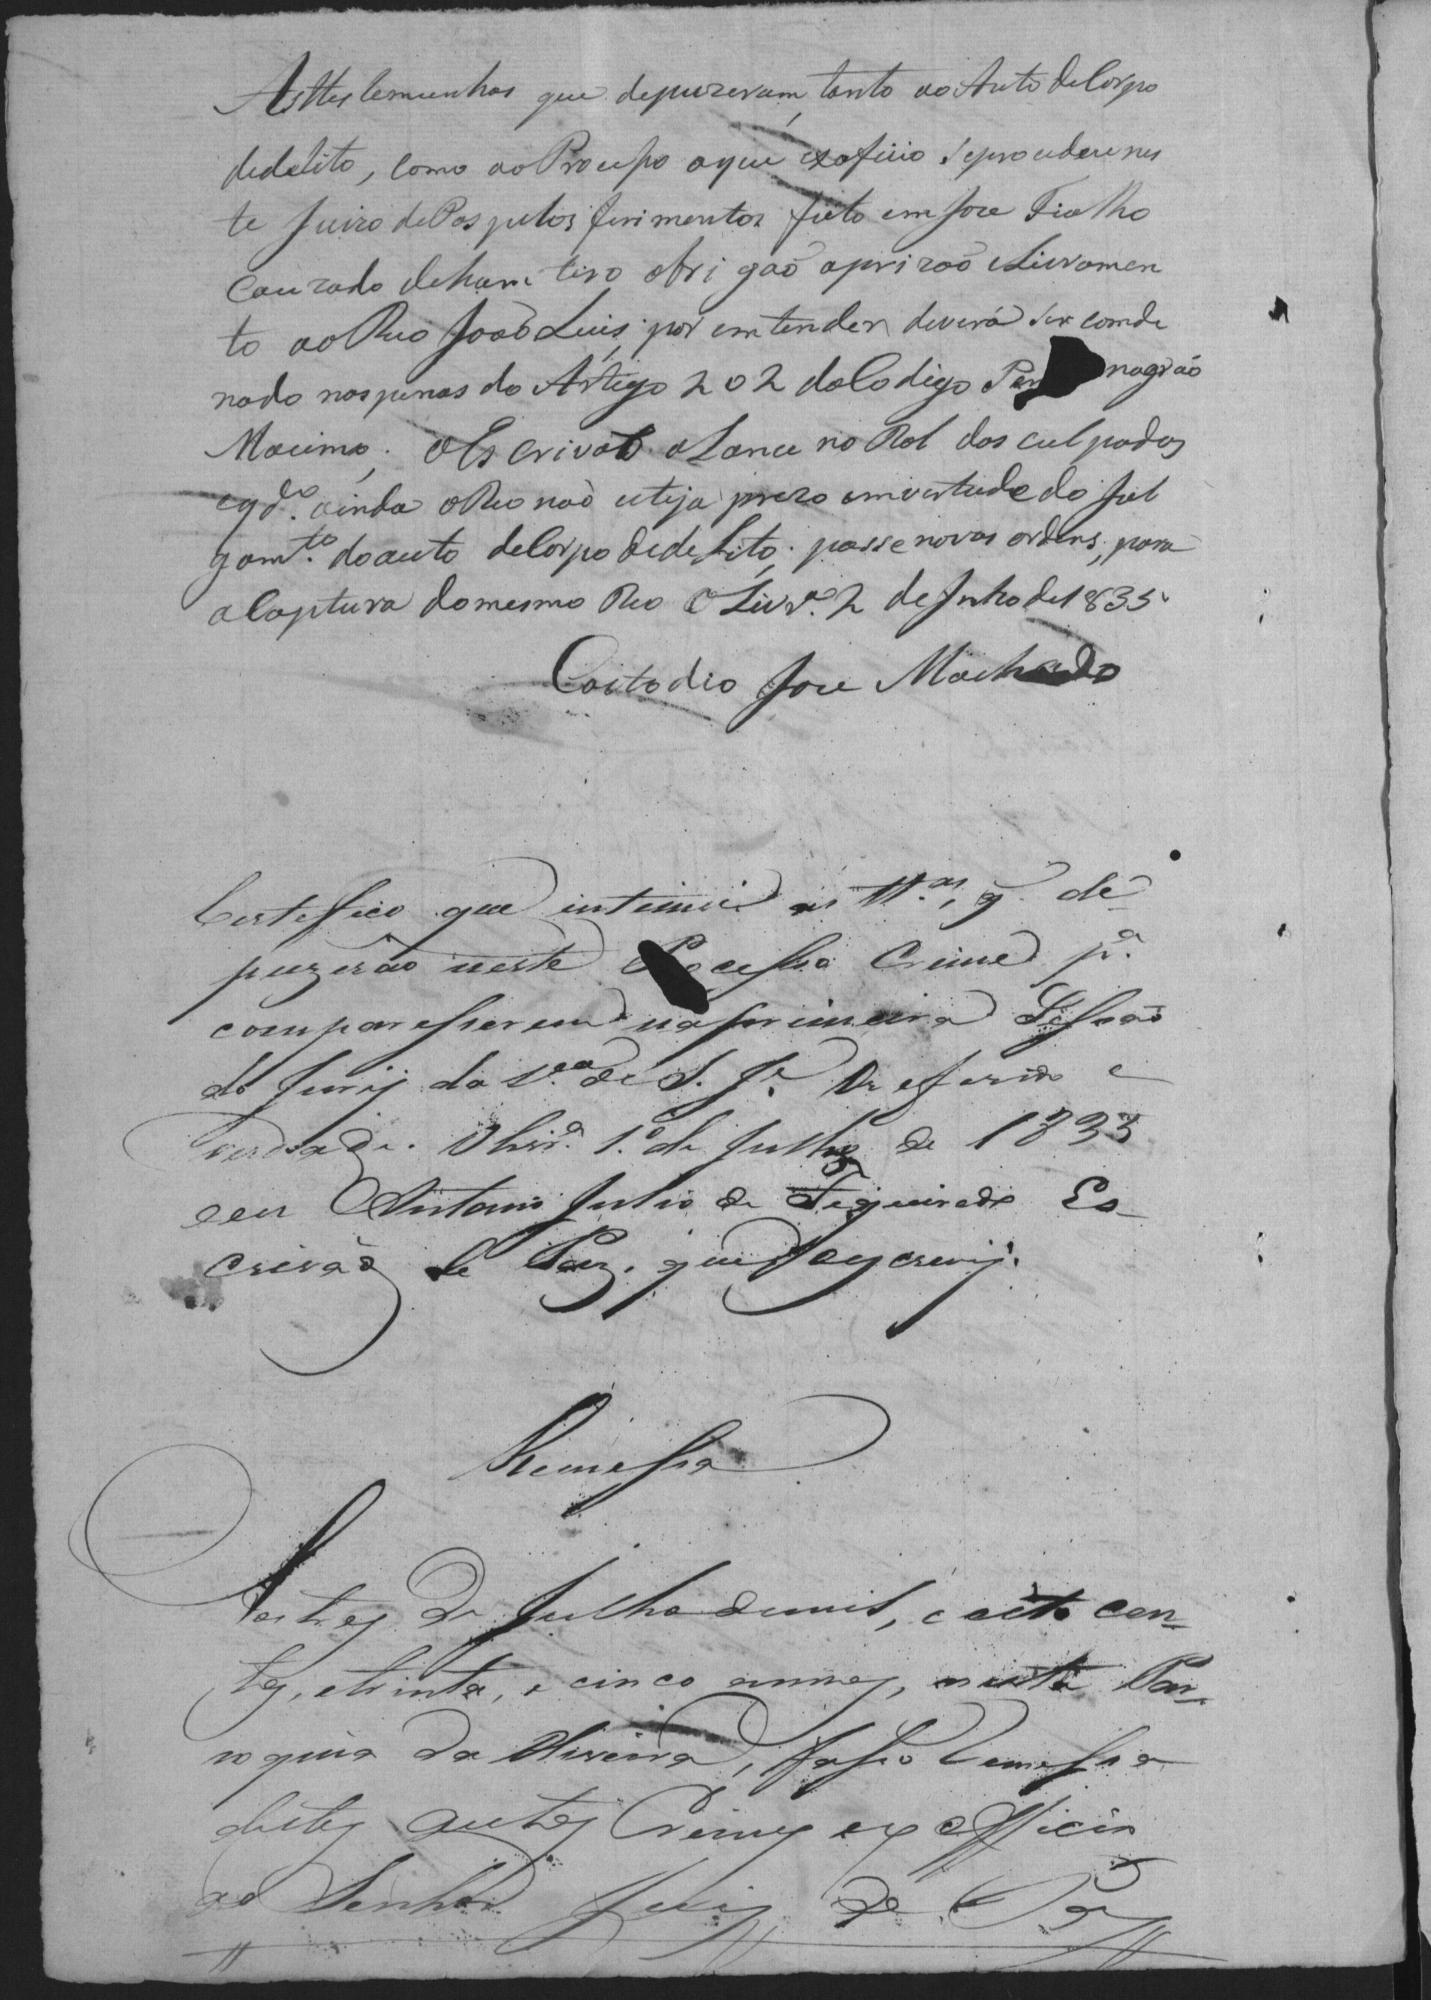 As ttestemunhas que depuzeram, tanto ao Auto de Corpo
dedelito, como ao Proceso aque exoficio seprocedeu nes
te Juizo de Pas pelos ferimentos feito em Joze Fialho
Cauzado dehum tiro obrigaõ aprizaõ eLivramen
to ao Reo Joaõ Luis, por emtender deverá ser comde
nado naspenas do Artigo 202 do Codigo Pen nográo
Macimo. OEscrivaõ oLance no Rol dos culpados
eqdo. ainda oReo naõ esteja prezo emvertude do Jul
gamto. do auto de Corpo dedelito, passe novas ordens, para
aCaptura domesmo Reo Olivra. 2 de Julho de 1835.
Costodio Joze Machado
Certefico que intimei as ttas. q. de
puzerão neste Processo Crime pa.
comparesserem na primeira Sessaõ
do Jurij da Va. de S. Je. O referido e
verdade. Olivra. 1o. de Julho de 1835
eeu Antonio Julio de Figueiredo Es-
crivaõ de Paz. que o escrevij.
Remessa
Aos trez de Julho demil, e oito cen-
tos, etrinta, e cinco annos, nesta Par-
roquia da Oliveira, fasso Remessa
destes autos Crimes ex officio
ao Senhor Juiz de Paz